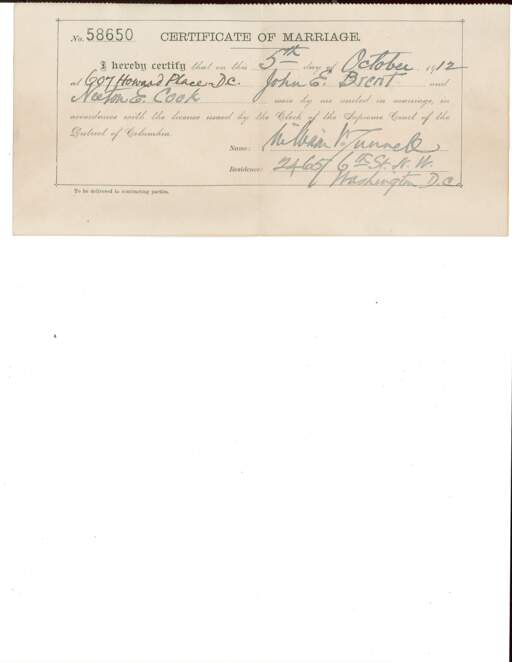 No. 58650 CERTIFICATE OF MARRIAGE.
I hereby certify that on this 5th day of October 1912
at 607 Howard Place D.C. John E. Brent and
E. Cook were by me united in marriage, in
accordance with the license issued by the Clerk of the Supreme Court of the
District of Columbia.
Name: William V. Tunnell
Residence: 2465 6th St. N.W.
Washington D.C.
To be delivered to contracting parties.